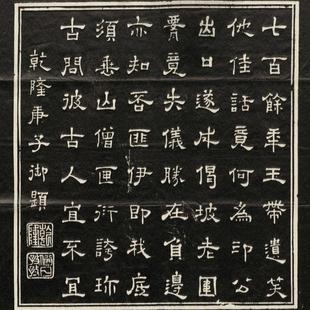 七百餘年玉帶遺笑
他佳話竟何為印公
出口遂成偈坡老圍
腰竟失儀勝在負邊
亦知否匪伊即我底
須垂山僧匣衍誇珍
古問彼古人宜不宜
乾隆庚子御題